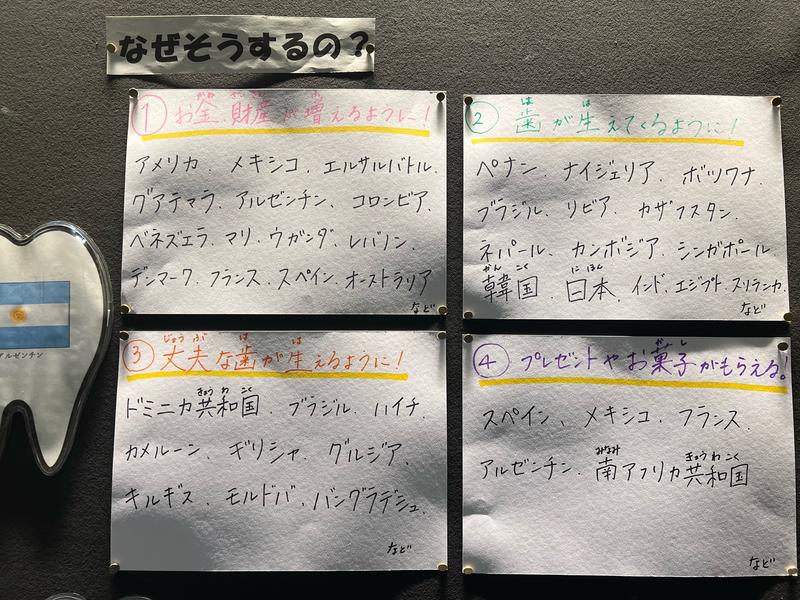 なぜそうするの？
① お金、財産が増えるように！
アメリカ、メキシコ、エルサルバトル、
グアテマラ、アルゼンチン、コロンビア、
ベネズエラ、マリ、ウガンダ、レバノン、
デンマーク、フランス、スペイン、オーストラリア
など
② 歯が生えてくるように！
ペナン、ナイジェリア、ボツワナ、
ブラジル、リビア、カザフスタン、
ネパール、カンボジア、シンガポール、
韓国、日本、インド、エジプト、スリランカ、
など
③ 丈夫な歯が生えるように！
ドミニカ共和国、ブラジル、ハイチ、
カメルーン、ギリシャ、グルジア、
キルギス、モルドバ、バングラデシュ、
など
④ プレゼントやお菓子がもらえる！
スペイン、メキシコ、フランス、
アルゼンチン、南アフリカ共和国
など
アルゼンチン